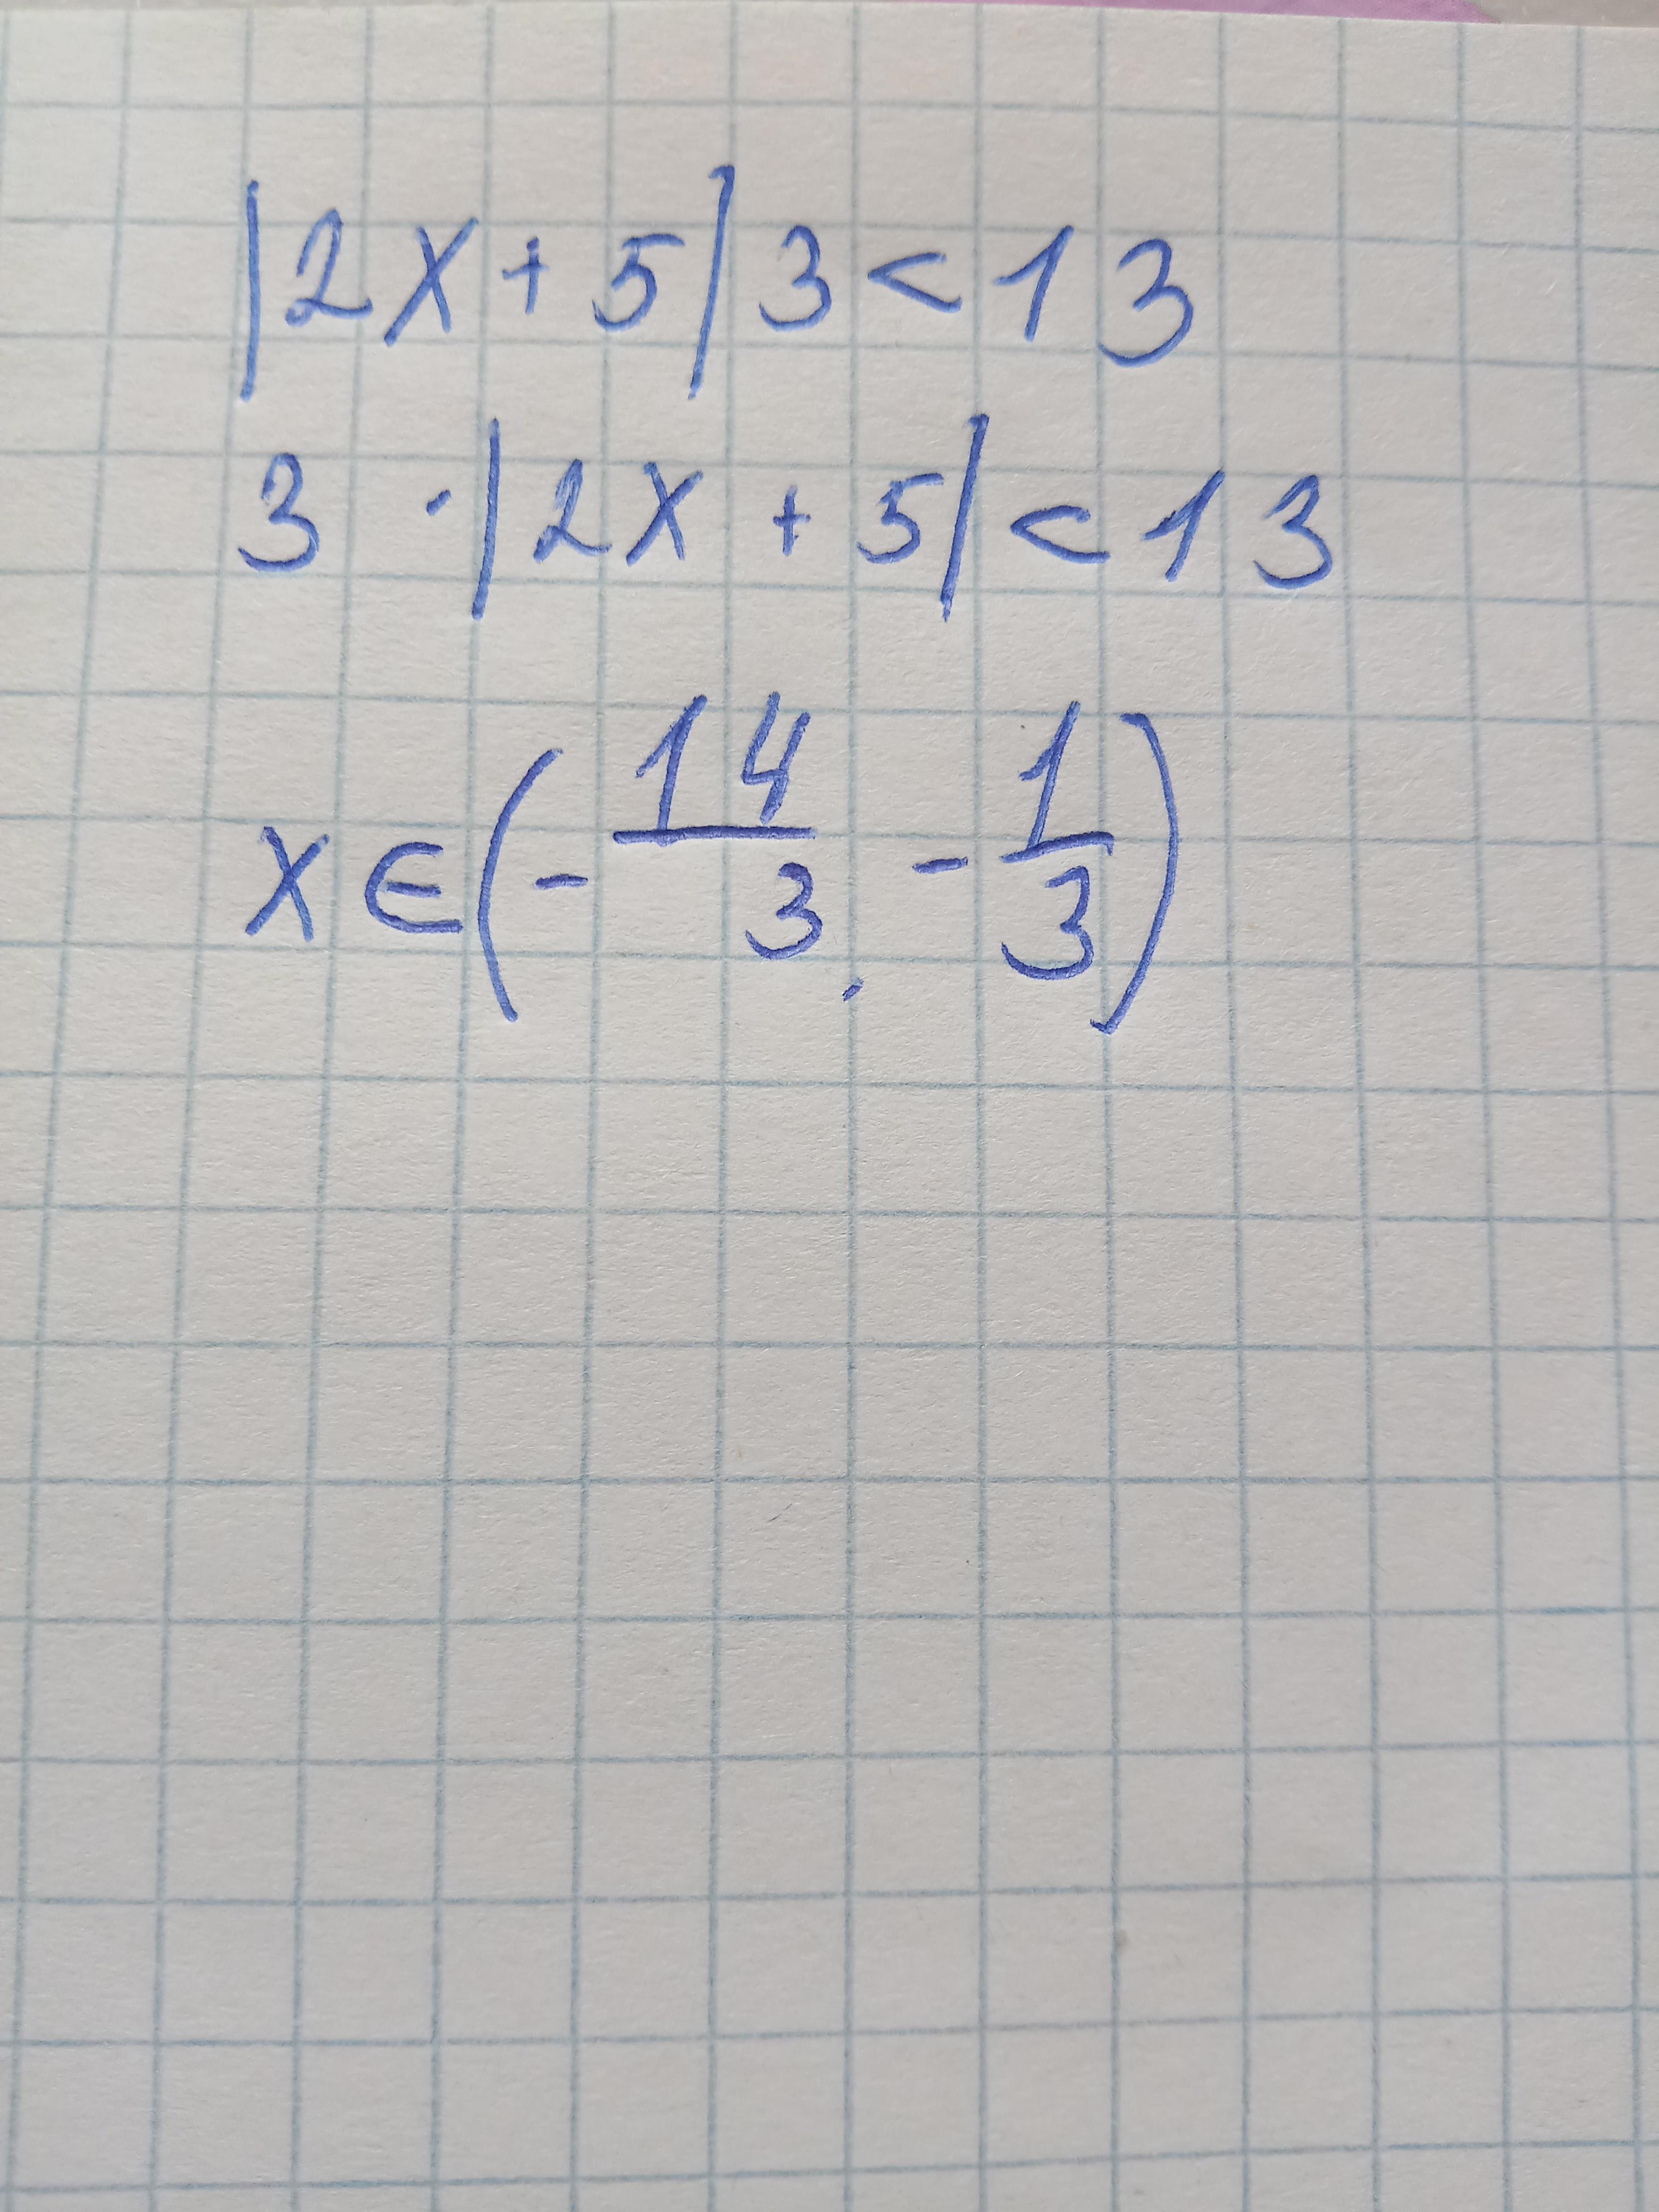 |2x+5|3<13
3·|2x+5|<13
x∈(-14/3, -1/3)